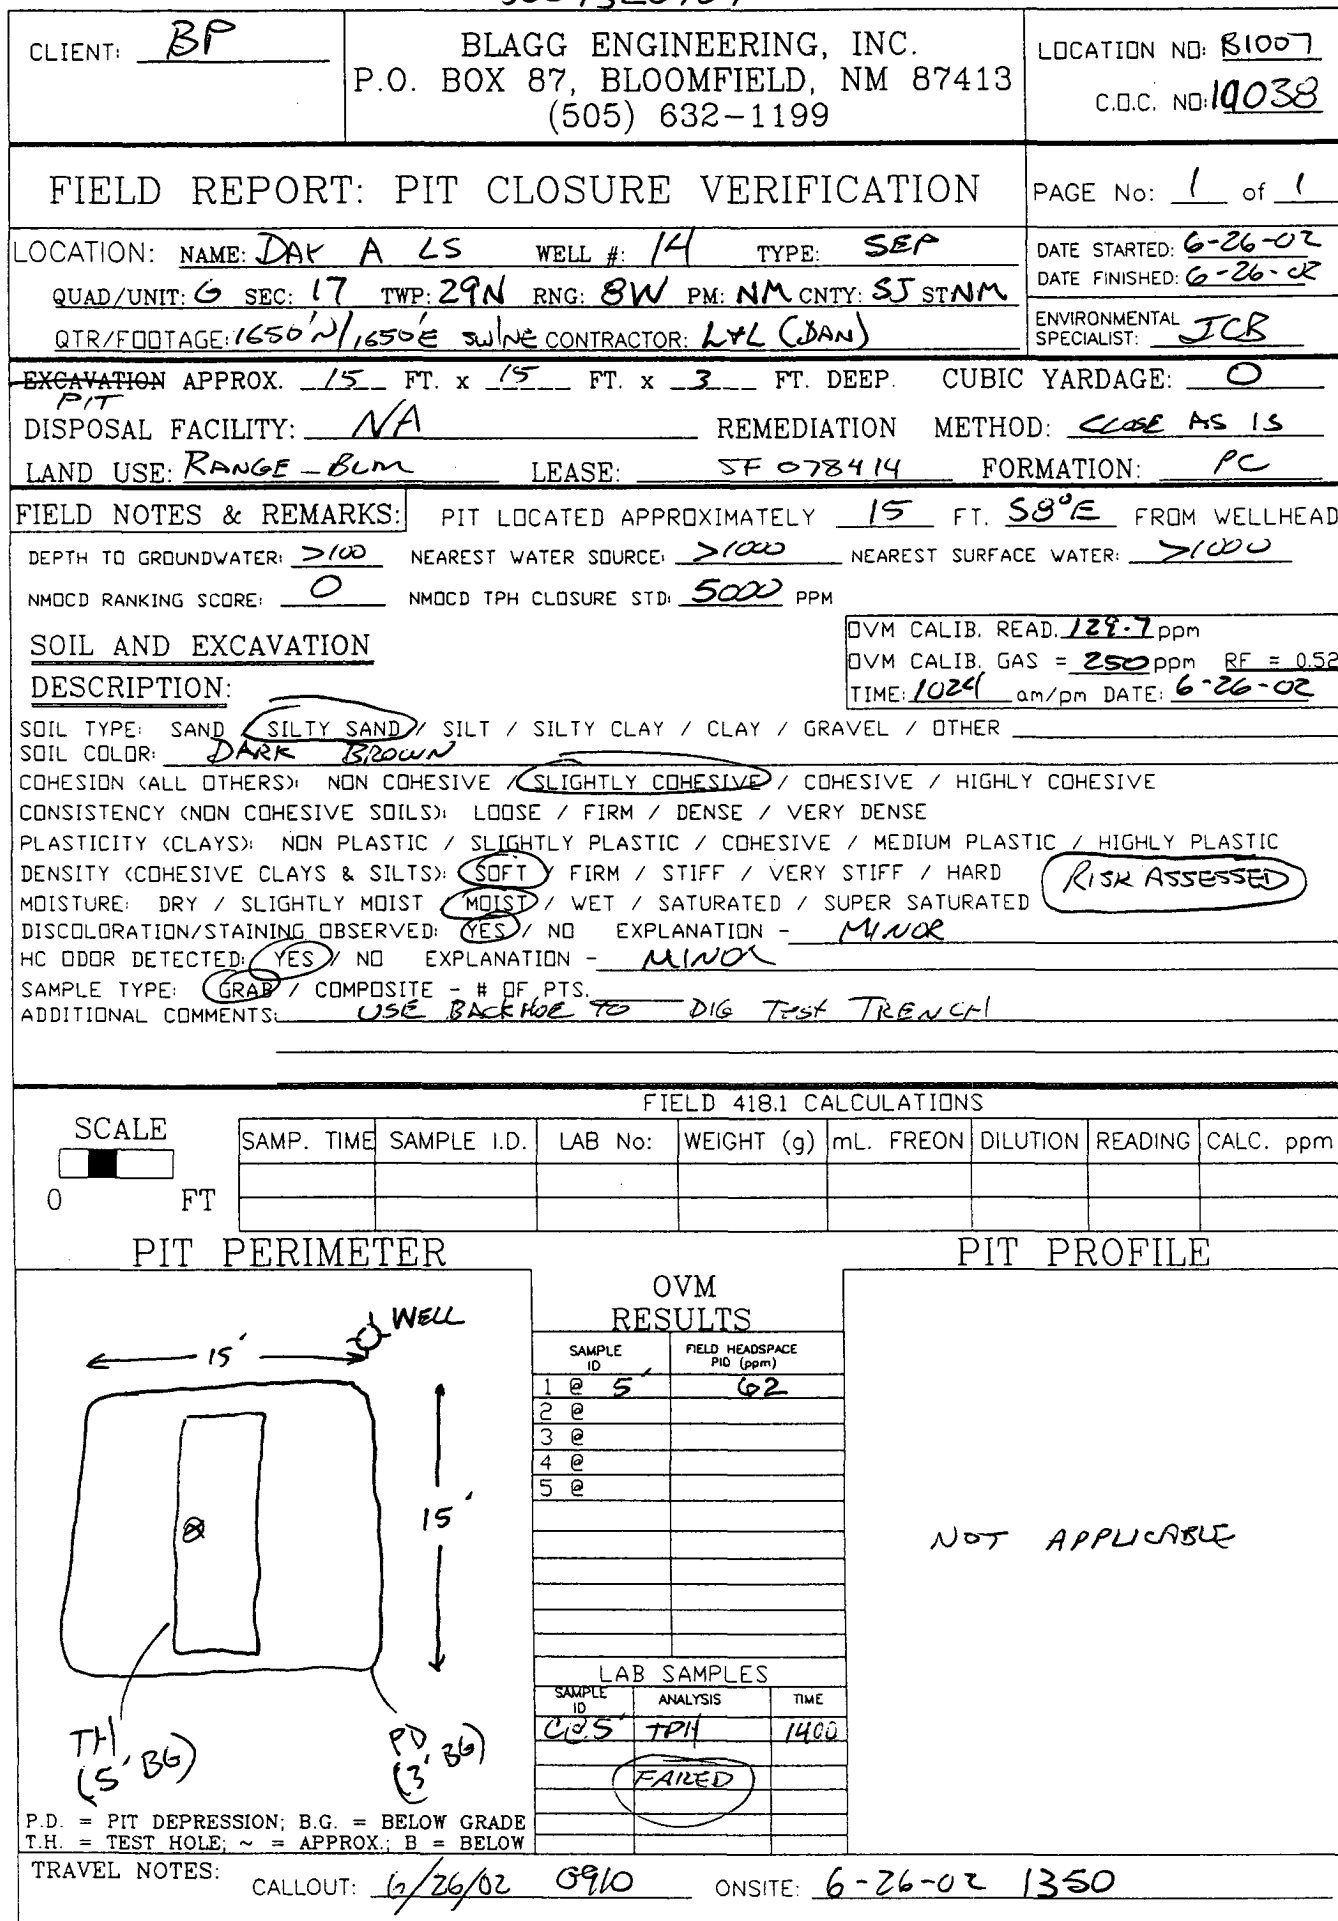 CLIENT: BP
BLAGG ENGINEERING, INC.
P.O. BOX 87, BLOOMFIELD, NM 87413
(505) 632-1199
LOCATION NO: B1007
C.O.C. NO: 10038
FIELD REPORT: PIT CLOSURE VERIFICATION
PAGE No: 1 of 1
LOCATION: NAME: DAY A LS WELL #: 14 TYPE: SEP
QUAD/UNIT: G SEC: 17 TWP: 29N RNG: 8W PM: NM CNTY: SJ ST NM
QTR/FOOTAGE: 1650'N/1650'E SW/NE CONTRACTOR: L+L (DAN)
DATE STARTED: 6-26-02
DATE FINISHED: 6-26-02
ENVIRONMENTAL SPECIALIST: JCB
EXCAVATION APPROX. 15 FT. x 15 FT. x 3 FT. DEEP. CUBIC YARDAGE: 0
PIT
DISPOSAL FACILITY: NA REMEDIATION METHOD: CLOSE AS IS
LAND USE: RANGE - BLM LEASE: SF 078414 FORMATION: PC
FIELD NOTES & REMARKS: PIT LOCATED APPROXIMATELY 15 FT. S8°E FROM WELLHEAD
DEPTH TO GROUNDWATER: >100 NEAREST WATER SOURCE: >1000 NEAREST SURFACE WATER: >1000
NMOCD RANKING SCORE: 0 NMOCD TPH CLOSURE STD: 5000 PPM
SOIL AND EXCAVATION
DESCRIPTION:
OVM CALIB. READ. 129.7 ppm
OVM CALIB. GAS = 250 ppm RF = 0.52
TIME: 1024 am/pm DATE: 6-26-02
SOIL TYPE: SAND / SILTY SAND / SILT / SILTY CLAY / CLAY / GRAVEL / OTHER
SOIL COLOR: DARK BROWN
COHESION (ALL OTHERS): NON COHESIVE / SLIGHTLY COHESIVE / COHESIVE / HIGHLY COHESIVE
CONSISTENCY (NON COHESIVE SOILS): LOOSE / FIRM / DENSE / VERY DENSE
PLASTICITY (CLAYS): NON PLASTIC / SLIGHTLY PLASTIC / COHESIVE / MEDIUM PLASTIC / HIGHLY PLASTIC
DENSITY (COHESIVE CLAYS & SILTS): SOFT / FIRM / STIFF / VERY STIFF / HARD
RISK ASSESSED
MOISTURE: DRY / SLIGHTLY MOIST / MOIST / WET / SATURATED / SUPER SATURATED
DISCOLORATION/STAINING OBSERVED: YES / NO EXPLANATION - MINOR
HC ODOR DETECTED: YES / NO EXPLANATION - MINOR
SAMPLE TYPE: GRAB / COMPOSITE - # OF PTS.
ADDITIONAL COMMENTS: USE BACKHOE TO DIG Test TRENCH
FIELD 418.1 CALCULATIONS
SCALE
0 FT
SAMP. TIME SAMPLE I.D. LAB No: WEIGHT (g) mL. FREON DILUTION READING CALC. ppm
PIT PERIMETER
PIT PROFILE
WELL
15'
15'
TH
(5' BG)
PD
(3' BG)
P.D. = PIT DEPRESSION; B.G. = BELOW GRADE
T.H. = TEST HOLE; ~ = APPROX.; B = BELOW
OVM
RESULTS
SAMPLE ID FIELD HEADSPACE PID (ppm)
1 @ 5' 62
2 @
3 @
4 @
5 @
LAB SAMPLES
SAMPLE ID ANALYSIS TIME
C@5' TPH 1400
FAILED
NOT APPLICABLE
TRAVEL NOTES: CALLOUT: 6/26/02 0910 ONSITE: 6-26-02 1350